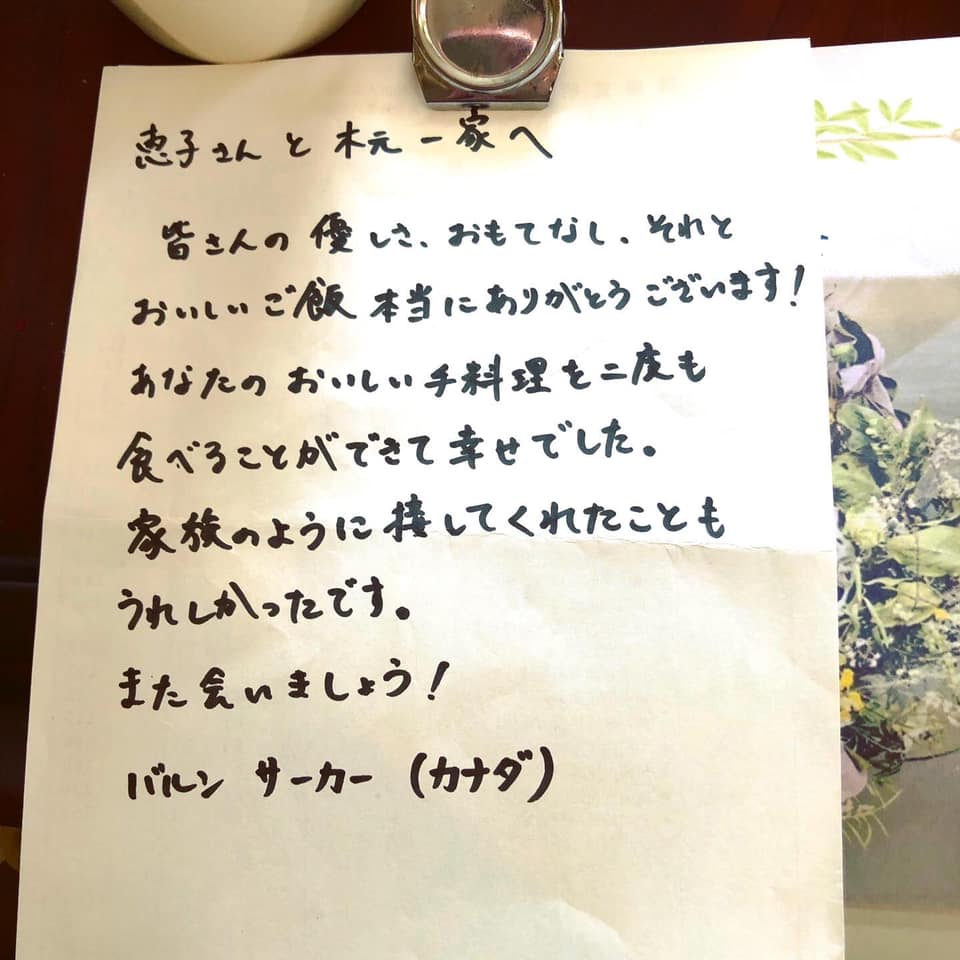 恵子さんと木元一家へ
皆さんの優しさ、おもてなし、それと
おいしいご飯本当にありがとうございます!
あなたのおいしい手料理を二度も
食べることができて幸せでした。
家族のように接してくれたことも
うれしかったです。
また会いましょう!
バルン サーカー (カナダ)